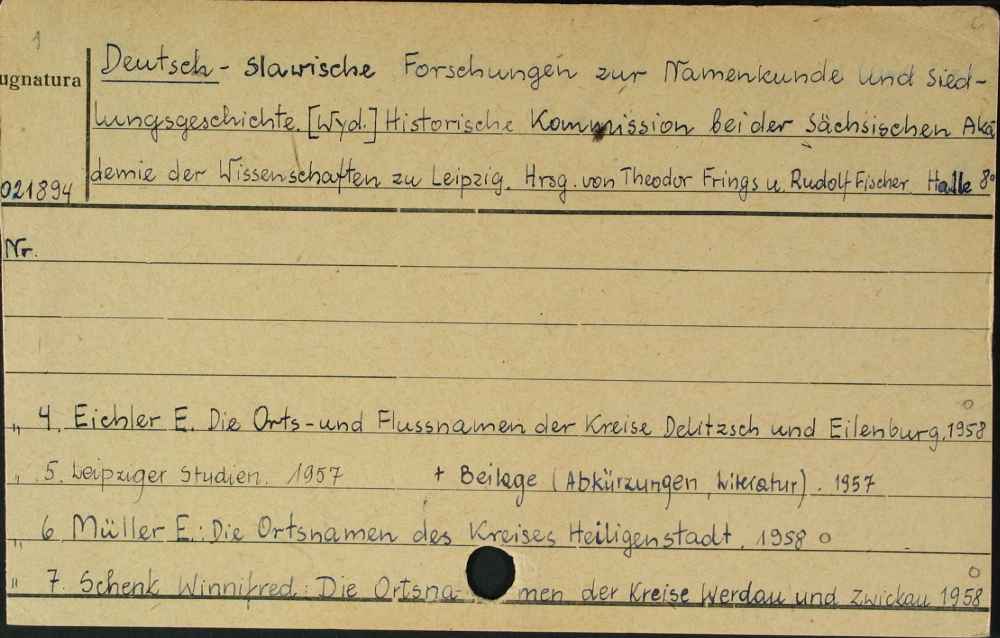 1
Deutsch - slawische Forschungen zur Namenkunde und Sied-
ugnatura
lungsgeschichte. [Wyd.] Historische Kommission bei der Sächsischen Aka
demie der Wissenschaften zu Leipzig. Hrsg. von Theodor Frings u. Rudolf Fischer. Halle 8°
021894
Nr.
" 4. Eichler E. Die Orts- und Flussnamen der Kreise Delitzsch und Eilenburg. 1958
" 5. Leipziger Studien. 1957 + Beilage (Abkürzungen, Literatur). 1957
" 6 Müller E.: Die Ortsnamen des Kreises Heiligenstadt. 1958
" 7. Schenk Winnifred: Die Ortsna- men der Kreise Werdau und Zwickau 1958